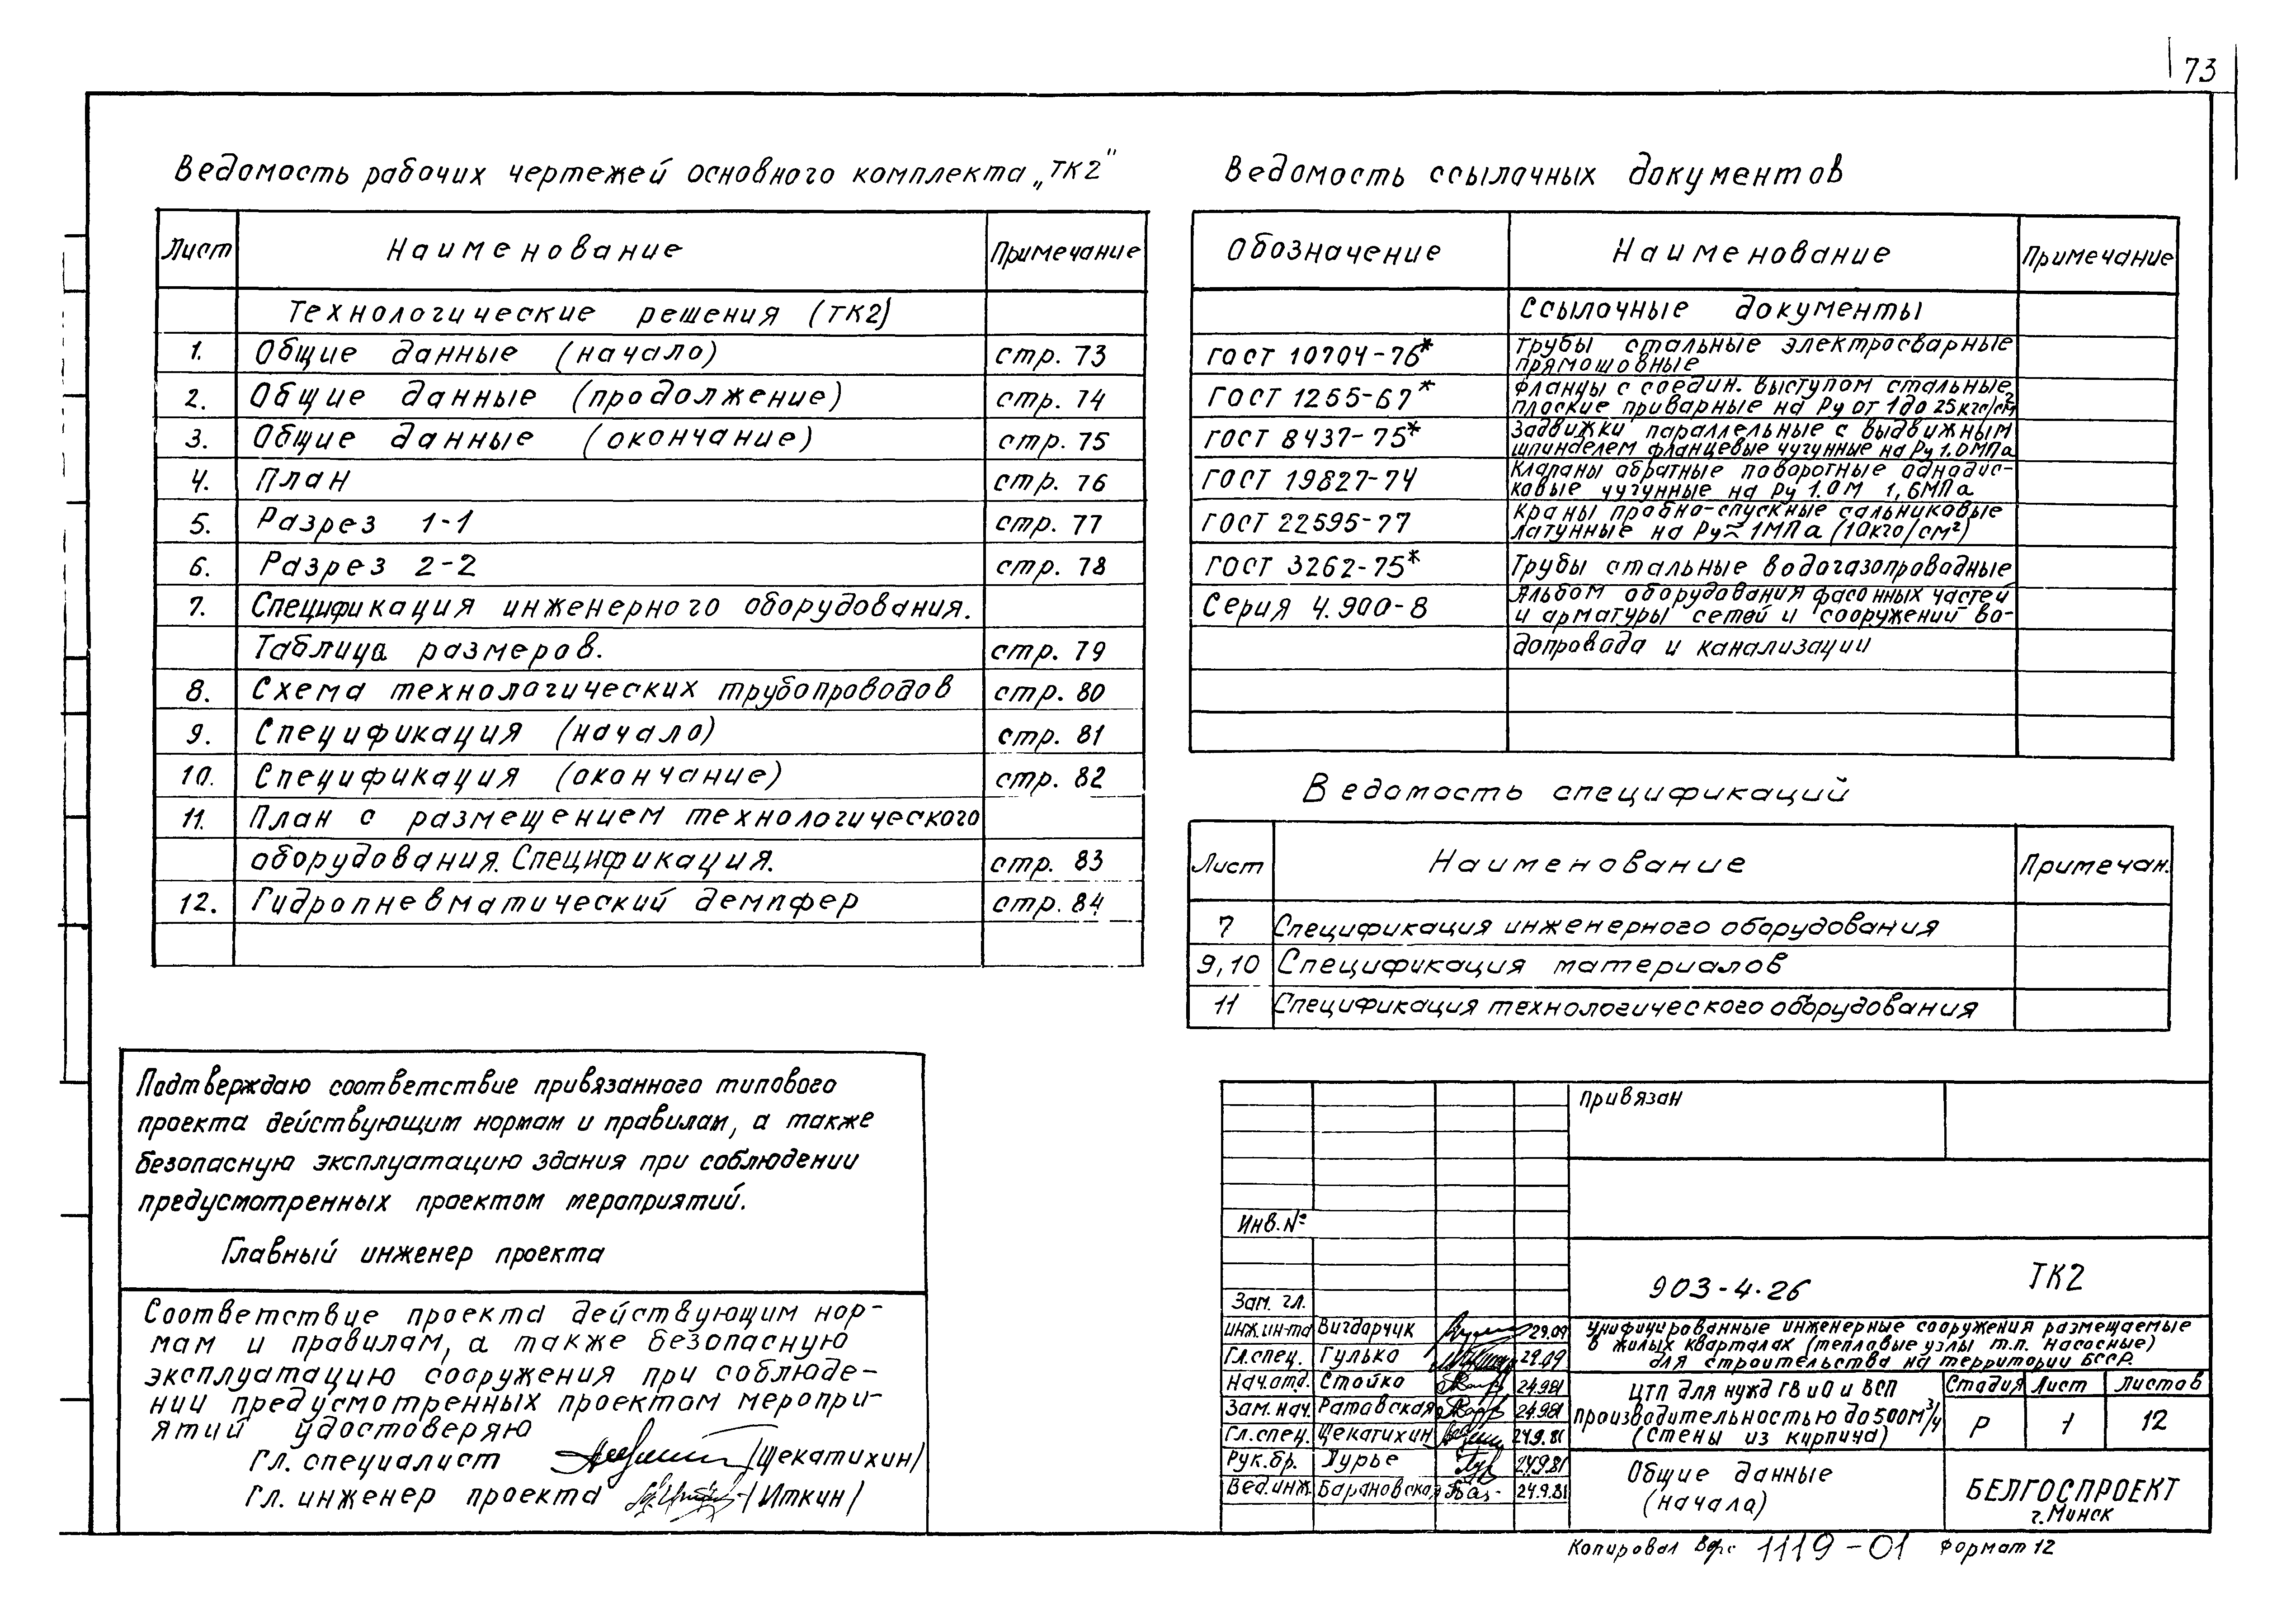 73
Ведомость рабочих чертежей основного комплекта „ТК2"
Лист Наименование Примечание
Технологические решения (ТК2)
1. Общие данные (начало) стр. 73
2. Общие данные (продолжение) стр. 74
3. Общие данные (окончание) стр. 75
4. План стр. 76
5. Разрез 1-1 стр. 77
6. Разрез 2-2 стр. 78
7. Спецификация инженерного оборудования.
Таблица размеров. стр. 79
8. Схема технологических трубопроводов стр. 80
9. Спецификация (начало) стр. 81
10. Спецификация (окончание) стр. 82
11. План с размещением технологического
оборудования. Спецификация. стр. 83
12. Гидропневматический демпфер стр. 84
Ведомость ссылочных документов
Обозначение Наименование Примечание
Ссылочные документы
ГОСТ 10704-76* Трубы стальные электросварные
прямошовные
ГОСТ 1255-67* Фланцы с соедин. выступом стальные,
плоские приварные на Ру от 1 до 25 кгс/см²
ГОСТ 8437-75* Задвижки параллельные с выдвижным
шпинделем фланцевые чугунные на Ру 1.0МПа
ГОСТ 19827-74 Клапаны обратные поворотные однодис-
ковые чугунные на Ру 1.0М 1,6МПа
ГОСТ 22595-77 Краны пробно-спускные сальниковые
латунные на Ру≈1МПа (10кгс/см²)
ГОСТ 3262-75* Трубы стальные водогазопроводные
Серия 4.900-8 Альбом оборудования фасонных частей
и арматуры сетей и сооружений во-
допровода и канализации
Ведомость спецификаций
Лист Наименование Примечан.
7 Спецификация инженерного оборудования
9,10 Спецификация материалов
11 Спецификация технологического оборудования
Подтверждаю соответствие привязанного типового
проекта действующим нормам и правилам, а также
безопасную эксплуатацию здания при соблюдении
предусмотренных проектом мероприятий.
Главный инженер проекта
Соответствие проекта действующим нор-
мам и правилам, а также безопасную
эксплуатацию сооружения при соблюде-
нии предусмотренных проектом меропри-
ятий удостоверяю
Гл. специалист /Щекатихин/
Гл. инженер проекта /Иткин/
Привязан
Инв. №
903-4.26 ТК2
Зам. гл.
инж.ин-та Вигдорчик 29.09
Гл.спец. Гулько 29.09
Нач.отд. Стойко 24.9.81
Зам. нач. Ратовская 24.9.81
Гл.спец. Щекатихин 24.9.81
Рук.бр. Лурье 24.9.81
Вед.инж. Барановская 24.9.81
Унифицированные инженерные сооружения размещаемые
в жилых кварталах (тепловые узлы т.п. насосные)
для строительства на территории БССР.
ЦТП для нужд ГВ и О и ВСП
производительностью до 500м³/ч
(стены из кирпича)
Стадия Лист Листов
Р 1 12
Общие данные
(начало)
БЕЛГОСПРОЕКТ
г. Минск
Копировал 1119-01 Формат 12